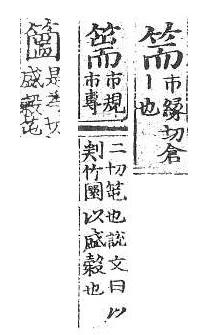 篅市緣切倉
丨也
篅市規
市專
二切也說文曰以
判竹圜以盛穀也
是專切
盛穀